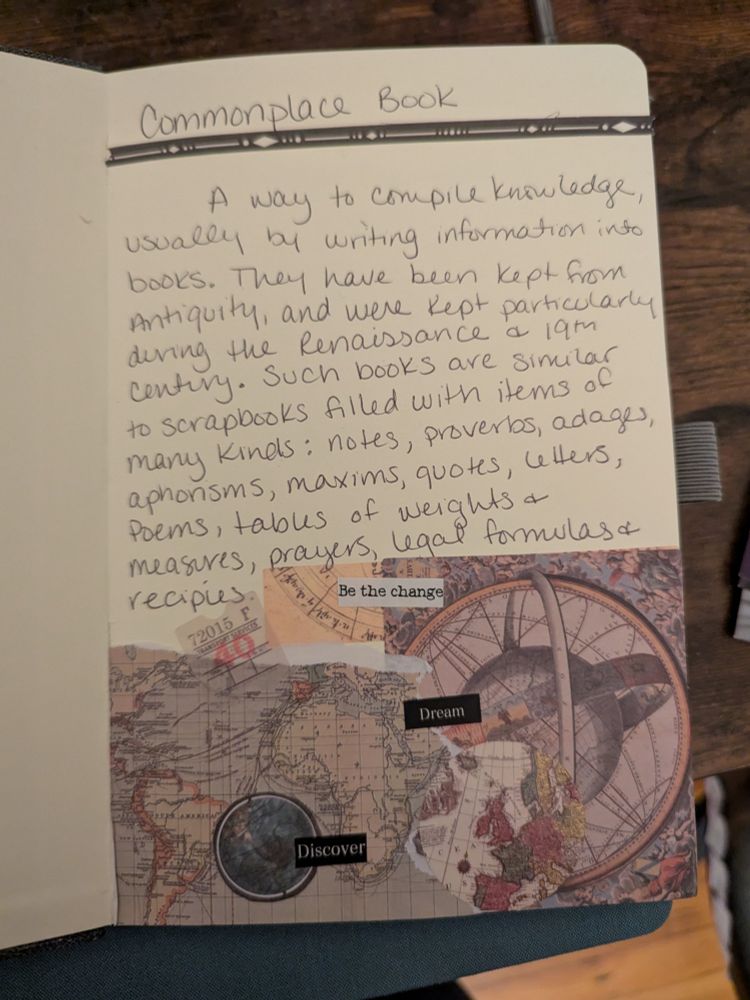 Commonplace Book
A way to compile knowledge,
usually by writing information into
books. They have been kept from
Antiquity, and were kept particularly
during the Renaissance & 19th
century. Such books are similar
to scrapbooks filled with items of
many kinds: notes, proverbs, adages,
aphorisms, maxims, quotes, letters,
Poems, tables of weights &
measures, prayers, legal formulas &
recipies.
Be the change
72015 F
TRANSPORT SERVICES
40
Dream
Discover